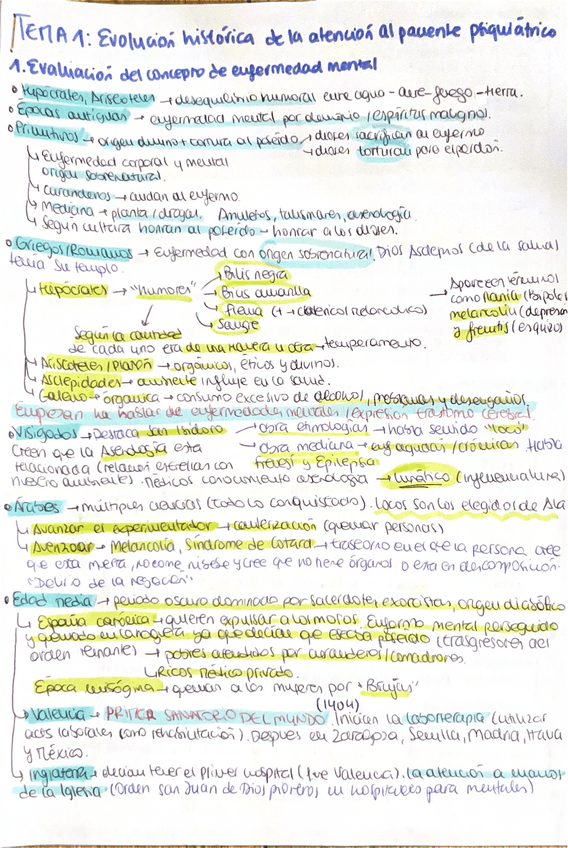 TEMA 1: Evolución histórica de la atención al paciente psiquiátrico
1. Evaluación del concepto de enfermedad mental
• Hipócrates, Aristóteles → desequilibrio humoral entre agua - aire - fuego - tierra.
• Épocas antiguas → enfermedad mental por demonio (espíritus malignos).
• Primitivos → origen divino + cortura al poseído → dioses sacrifican al enfermo
→ dioses torturan para el perdón.
↳ Enfermedad corporal y mental
origen sobrenatural.
↳ Curanderos → cuidan al enfermo.
↳ Medicina → planta/drogas. Amuletos, talismanes, astrología.
↳ Según cultura honran al poseído → honrar a los dioses.
• Griegos/Romanos → Enfermedad con origen sobrenatural. Dios Asclepios (de la salud)
tenía su templo.
↳ Hipócrates → "humores" → Bilis negra
→ Bilis amarilla
→ Flema (+ → coléricos/melancólico)
→ Sangre
→ Aparecen término
como manía (bipolar)
melancolía (depresión)
y frenitis (esquizo)
Según la cantidad
de cada uno era de una manera u otra → temperamento.
↳ Aristóteles/Platón → orgánicos, éticos y divinos.
↳ Asclepidades → ambiente influye en la salud.
↳ Galeno → orgánica → consumo excesivo de alcohol, y desengaños.
Empiezan ha hablar de enfermedades mentales (expresión trastorno cerebral
• Visigodos → Destaca San Isidoro → obra etimologías → habla sentido "loco"
→ obra medicina → enf agudas/crónicas Habla
frenesí y Epilepsia.
Creen que la Astrología está
relacionada (relación estrellas con
nuestro ambiente). Médicos conocimiento astrología → Lunático (influencia luna)
• Árabes → múltiples creencias (todo lo conquistado). Locos son los elegidos de Alá
↳ Avanzar el experimentador → cauterización (quemar personas)
↳ Avenzoar → Melancolía, Síndrome de Cotard → trastorno en el que la persona cree
que está muerta, no come ni bebe y cree que no tiene órganos o está en descomposición.
"Delirio de la negación"
• Edad media → periodo oscuro dominado por sacerdote, exorcistas, origen diabólico
↳ España católica → quieren expulsar a los moros. Enfermo mental perseguido
y quemado en la hoguera ya que decían que estaba poseído (trasgresores del
orden reinante) → pobres atendidos por curanderos/comadrones.
↳ Ricos médico privado.
Época misógina → quemar a las mujeres por "Brujas"
(1409)
→ Valencia → PRIMER SANATORIO DEL MUNDO. Inician la laborterapia (utilizar
actos laborales como rehabilitación). Después en Zaragoza, Sevilla, Madrid, Italia
y México.
↳ Inglaterra → decían tener el primer hospital (fue Valencia). La atención a manos
de la Iglesia (orden San Juan de Dios pioneros en hospitales para mentales)